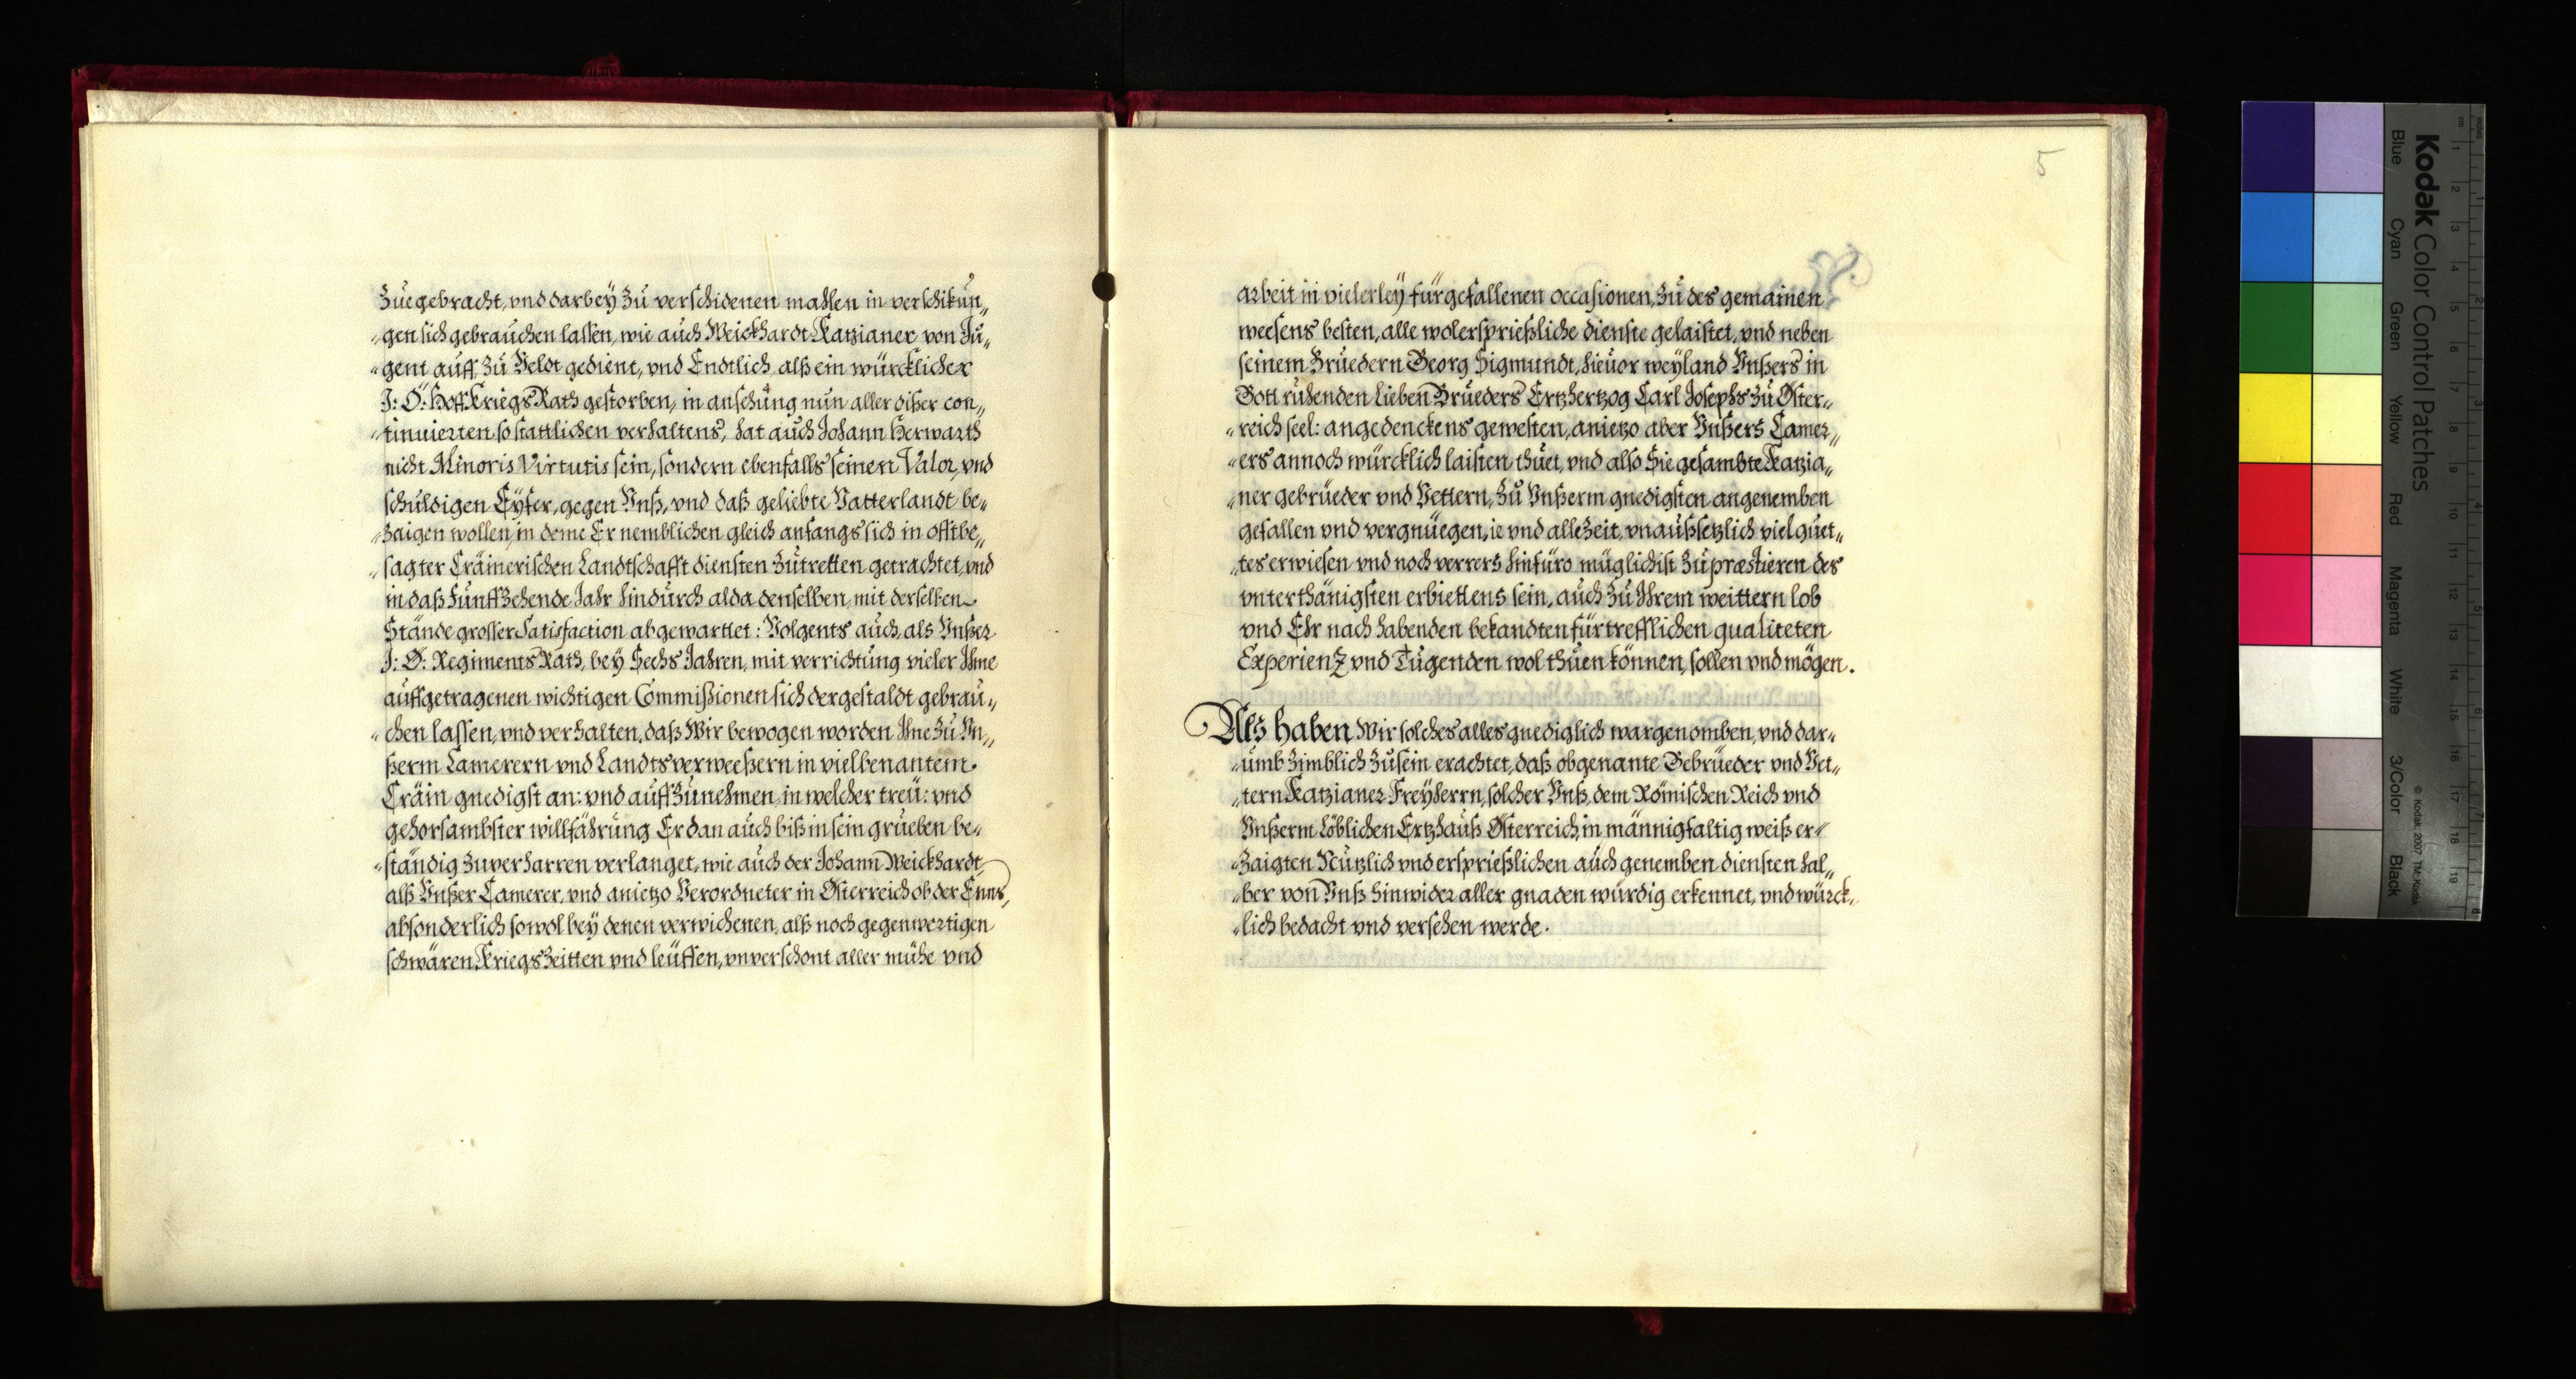 Zuegebracht, vnd darbey zu verschidenen mahlen in verschikun„
„gen sich gebrauchen lassen, wie auch Weickhardt Katzianer von Ju„
„gent auff zu Veldt gedient, vnd Endtlich alß ein würcklicher
J: Ö: HoffKriegsRath gestorben, in ansehung nun aller dißer con„
„tinuierten so stattlichen verhaltens, hat auch Johann Herwarth
nicht Minoris Virtutis sein, sondern ebenfalls seinen Valor, vnd
schuldigen Eyfer, gegen Vnß, vnd daß geliebte Vatterlandt be„
„zaigen wollen, in deme Er nemblichen gleich anfangs sich in offtbe„
„sagter Crainerischen Landtschafft diensten zutretten getrachtet, vnd
in daß Fünffzehende Jahr hindurch alda denselben, mit derselben
Stände grosser Satisfaction abgewarttet: Volgents auch, als Vnßer
J: Ö: Regiments Rath, bey Sechs Jahren, mit verrichtung vieler Ihme
auffgetragenen wichtigen Commißionen sich dergestaldt gebrau„
„chen lassen, vnd verhalten, daß Wir bewogen worden Ihne zu Vn„
ßerm Camerern vnd Landtsverweeßern in vielbenantem
Cräin gnedigst an: vnd auffzunehmen, in welcher treü: vnd
gehorsambster willfährung Er dan auch biß in sein grueben be„
„ständig zuverharren verlanget, wie auch der Johann Weickhardt
alß Vnßer Camerer, vnd anietzo Verordneter in Österreich ob der Enns,
absonderlich sowol bey denen verwichenen, alß noch gegenwertigen
schwären KriegsZeitten vnd leüffen, vnverschont aller mühe vnd
5
arbeit in vielerley fürgefallenen occasionen, zu des gemainen
weesens besten, alle wolersprießliche dienste gelaistet, vnd neben
seinem Bruedern Georg Sigmundt, hieuor weyland Vnßers in
Gott ruhenden lieben Brueders Ertzhertzog Carl Josephs zu Öster„
„reich seel: angedenckens gewesten, anietzo aber Vnßers Camer„
„ers annoch würcklich laisten thuet, vnd also Sie gesambte Katzia„
„ner gebrüeder vnd Vettern, zu Vnßerm gnedigsten angenemben
gefallen vnd vergnüegen, ie vnd alleZeit, vnaußsetzlich viel guet„
„tes erwiesen vnd noch verrers hinfüro müglichist zu præstieren des
vnterthänigsten erbiettens sein, auch zu Ihrem weittern lob
vnd Ehr nach habenden bekandten fürtrefflichen qualiteten
Experienz vnd Tugenden wol thuen können, sollen vnd mögen.
Alß haben Wir solches alles gnediglich wargenomben, vnd dar„
„umb zimblich zusein erachtet, daß obgenante Gebrüeder vnd Vet„
„tern Katzianer Freyherrn, solcher Vnß, dem Römischen Reich vnd
Vnßerm löblichen Ertzhauß Österreich, in männigfaltig weiß er„
„zaigten Nützlich vnd ersprießlichen auch genemben diensten hal„
„ber von Vnß hinwider aller gnaden würdig erkennet, vnd würck„
„lich bedacht vnd versehen werde.
Kodak Color Control Patches
Blue Cyan Green Yellow Red Magenta White 3/Color Black
© Kodak, 2007 TM: Kodak